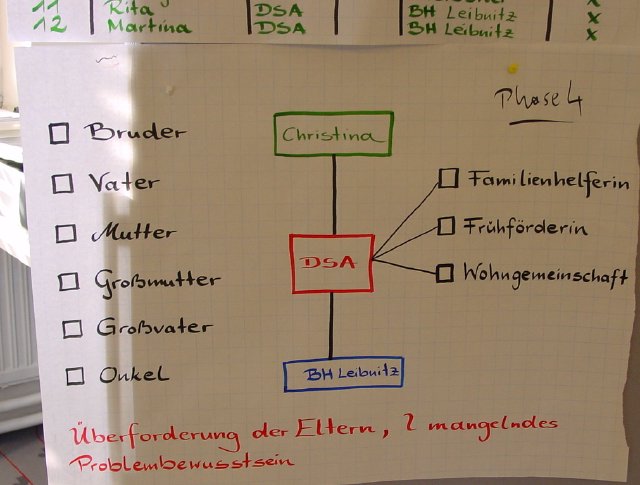 11 Rita DSA BH Leibnitz x
12 Martina DSA BH Leibnitz x
Phase 4
Bruder
Vater
Mutter
Großmutter
Großvater
Onkel
Christina
DSA
BH Leibnitz
Familienhelferin
Frühförderin
Wohngemeinschaft
Überforderung der Eltern, 2 mangelndes
Problembewusstsein